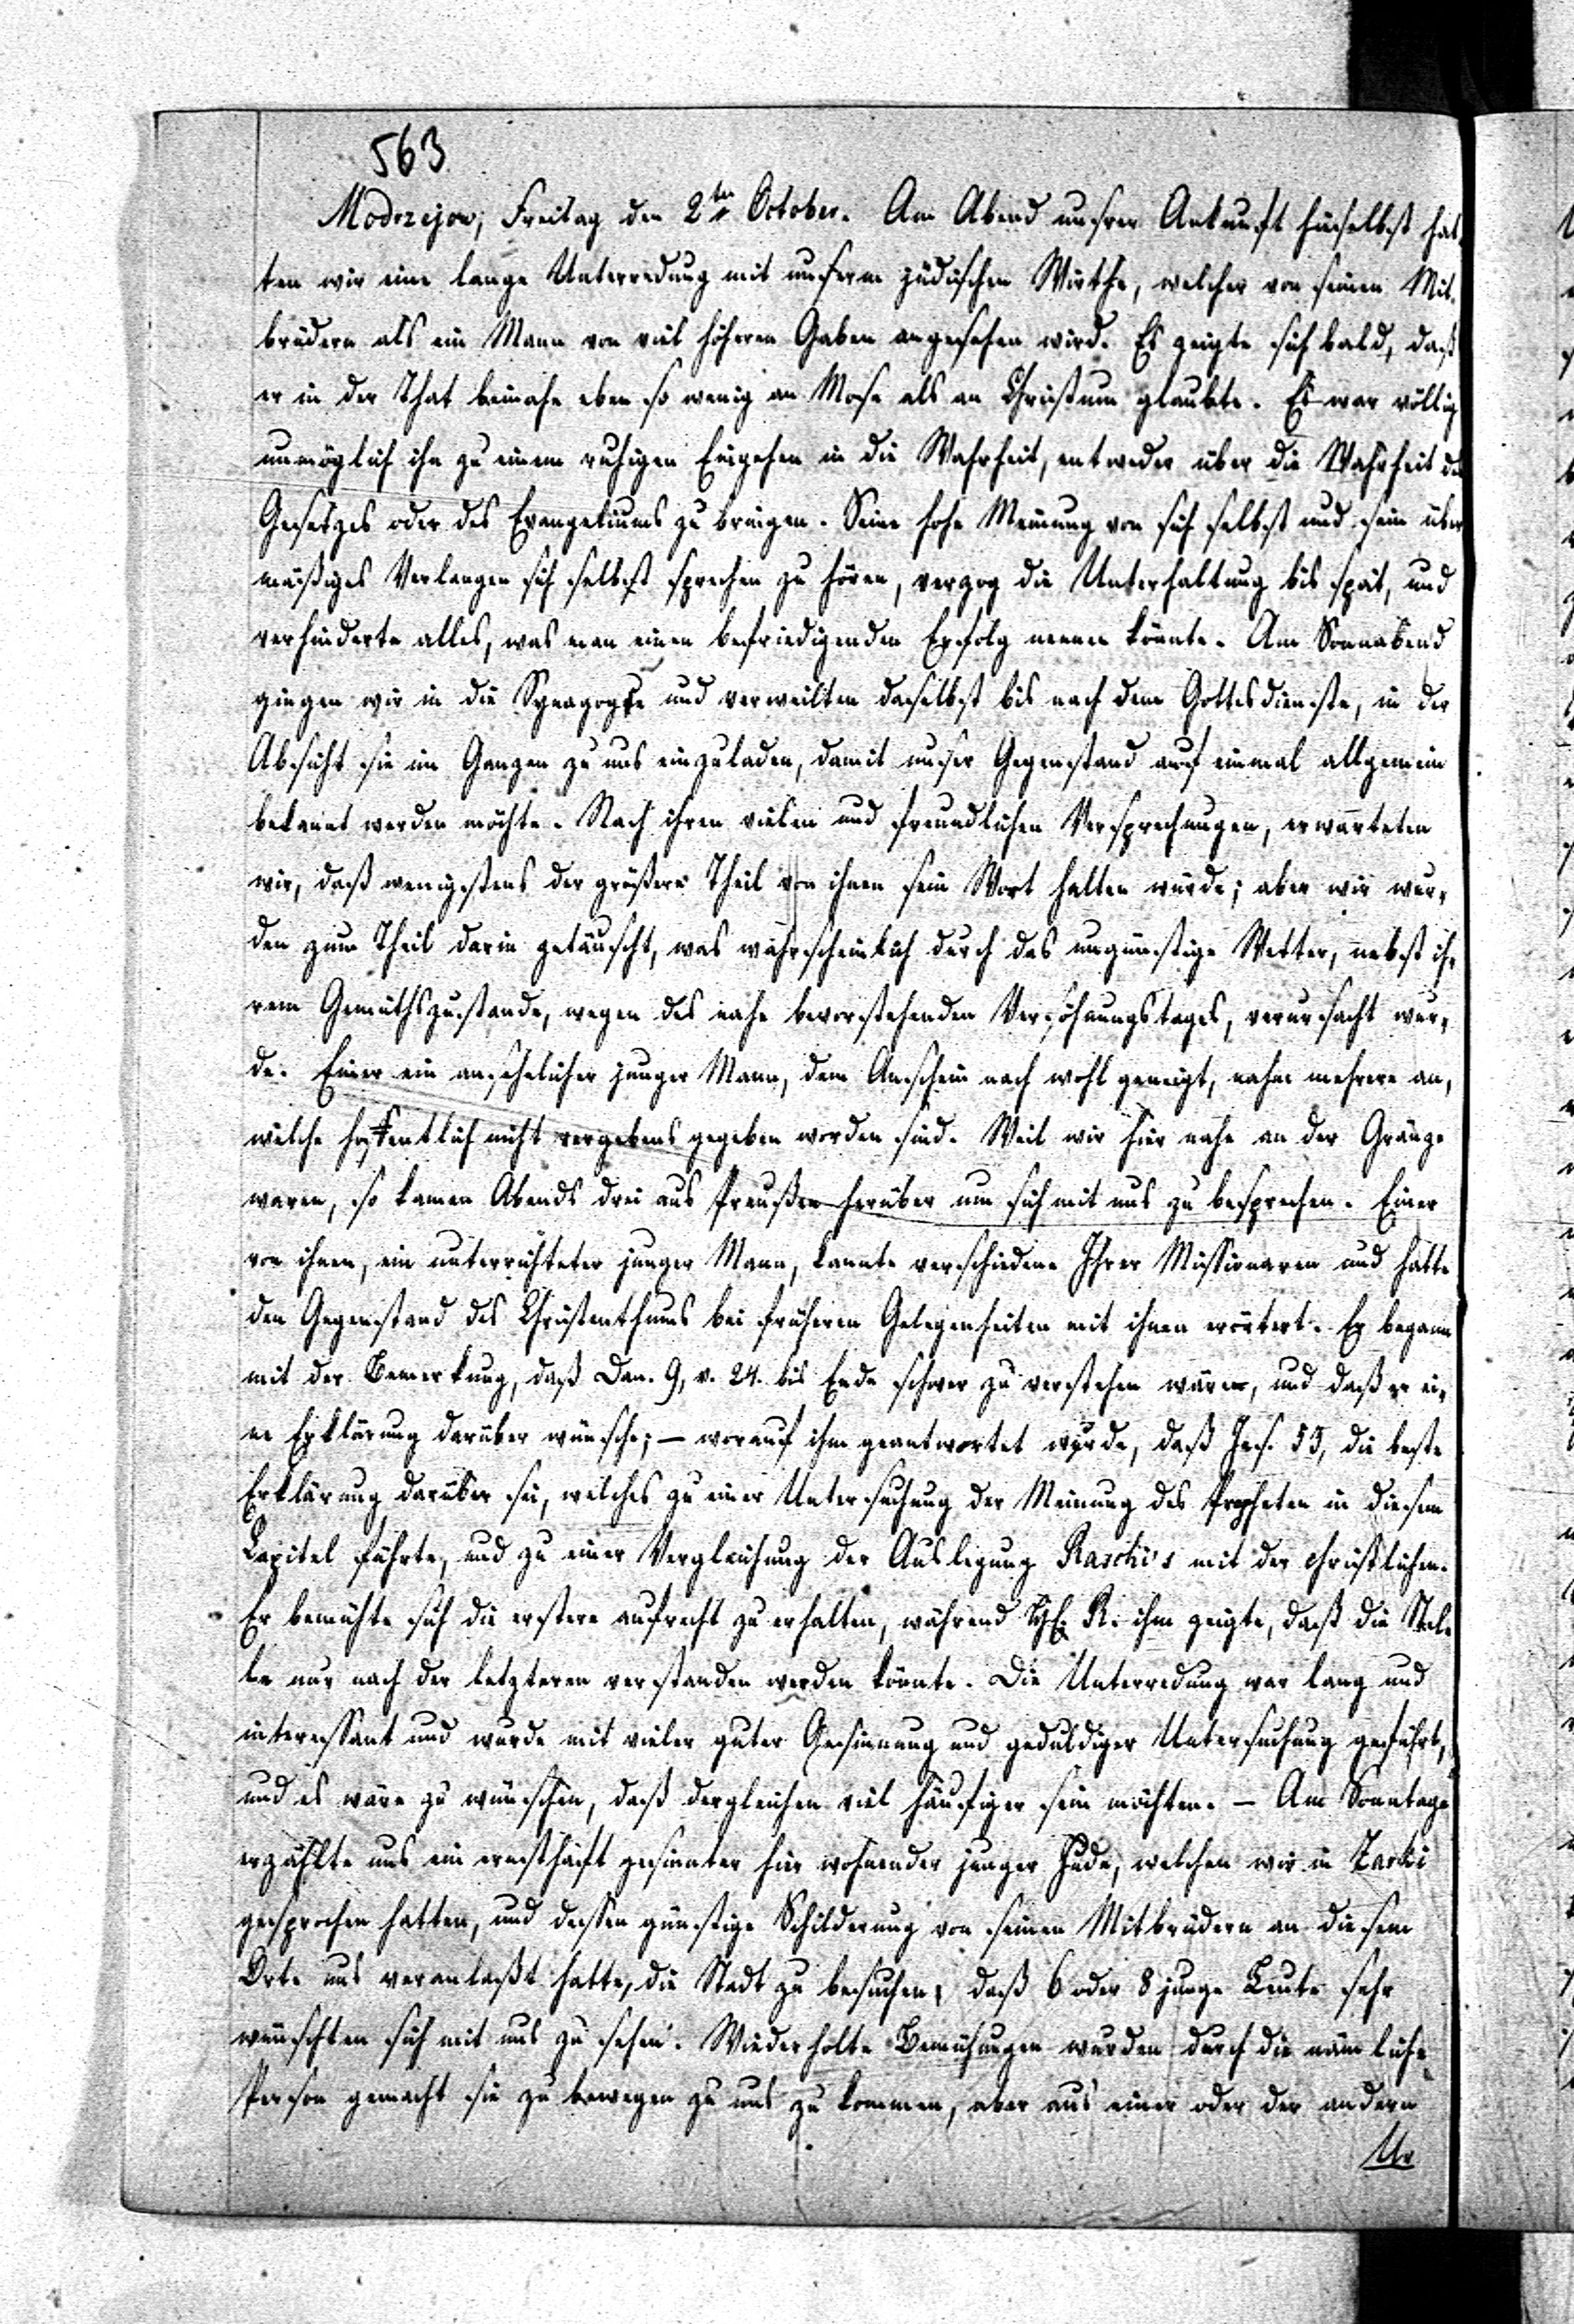 563
Modrzejow, Freitag den 2ten October. Am Abend unsrer Ankunft hieselbst hat-
ten wir eine lange Unterredung mit unserm jüdischen Wirthe, welcher von seinen Mit-
brüdern als ein Mann von viel höheren Gaben angesehen wird. Es zeigte sich bald, daß
er in der That beinahe eben so wenig an Mose als an Christum glaubte. Es war völlig
unmöglich ihn zu einem ruhigen Eingehen in die Wahrheit, entweder über die Wahrheit des
Gesetzes oder des Evangeliums zu bringen. Seine hohe Meinung von sich selbst und sein über
mäßiges Verlangen sich selbst sprechen zu hören, verzog die Unterhaltung bis spät, und
verhinderte alles, was man einen befriedigenden Erfolg nennen könnte. Am Sonnabend
giengen wir in die Synagoge und verweilten daselbst bis nach dem Gottesdienste, in der
Absicht sie im Ganzen zu uns einzuladen, damit unser Gegenstand auf einmal allgemein
bekannt werden möchte. Nach ihren vielen und freundlichen Versprechungen, erwarteten
wir, daß wenigstens der größere Theil von ihnen sein Wort halten würde; aber wir wur-
den zum Theil darin getäuscht, was wahrscheinlich durch das ungünstige Wetter, nebst ih-
rem Gemüthszustande, wegen des nahe bevorstehenden Versöhnungstages, verursacht wur-
de. Einer ein ansehnlicher junger Mann, dem Anschein nach wohl geneigt, nahm mehrere an,
welche hoffentlich nicht vergebens gegeben worden sind. Weil wir hier nahe an der Gränze
waren, so kamen Abends drei aus Preußen herüber um sich mit uns zu besprechen. Einer
von ihnen, ein unterrichteter junger Mann, kannte verschiedene Ihrer Missionaren und hatte
den Gegenstand des Christenthums bei früheren Gelegenheiten mit ihnen erörtert. Er begann
mit der Bemerkung, daß Dan. 9, v. 24. bis Ende schwer zu verstehen wären, und daß er ei-
ne Erklärung darüber wünsche; — worauf ihm geantwortet wurde, daß Jes. 53, die beste
Erklärung darüber sei, welches zu einer Untersuchung der Meinung des Propheten in diesem
Capitel führte, und zu einer Vergleichung der Auslegung Raschi's mit der christlichen.
Er bemühte sich die erstere aufrecht zu erhalten, während H. R. ihm zeigte, daß die Stel-
le nur nach der letzteren verstanden werden könnte. Die Unterredung war lang und
interessant und wurde mit vieler guter Gesinnung und geduldiger Untersuchung geführt,
und es wäre zu wünschen, daß dergleichen viel häufiger sein möchten. — Am Sonntage
erzählte uns ein ernsthaft gesinnter hier wohnender junger Jude, welchen wir in Zarki
gesprochen hatten, und dessen günstige Schilderung von seinen Mitbrüdern an diesem
Orte uns veranlaßt hatte, die Stadt zu besuchen, daß 6 oder 8 junge Leute sehr
wünschten sich mit uns zu sehen. Wiederholte Bemühungen wurden durch die nämliche
Person gemacht sie zu bewegen zu uns zu kommen, aber aus einer oder der andern
Ur